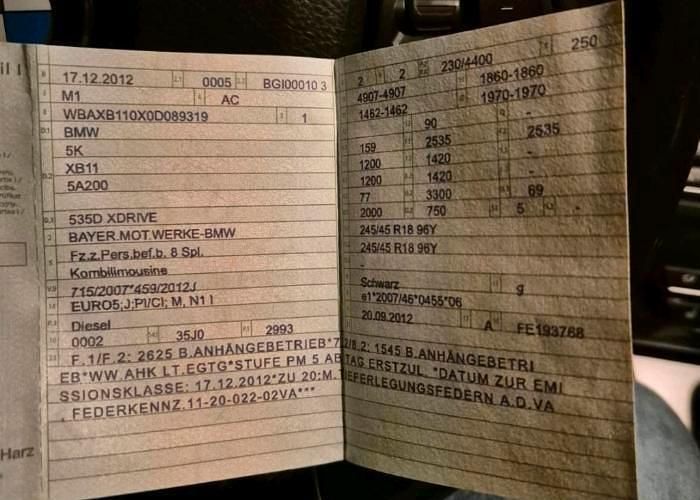 17.12.2012 0005 BGI00010 3
M1 AC
WBAXB110X0D089319 1
BMW
5K
XB11
5A200
535D XDRIVE
BAYER.MOT.WERKE-BMW
Fz.z.Pers.bef.b. 8 Spl.
Kombilimousine
715/2007*459/2012J
EURO5;J;PI/CI; M, N1 I
Diesel
0002 35J0 2993
2 2 230/4400 250
4907-4907 1860-1860
1462-1462 1970-1970
90 -
159 2535 2535
1200 1420 -
1200 1420 -
77 3300 69
2000 750 5 -
245/45 R18 96Y
245/45 R18 96Y
-
Schwarz g
e1*2007/46*0455*06
20.09.2012 A FE193768
F.1/F.2: 2625 B.ANHÄNGEBETRIEB*7.2/8.2: 1545 B.ANHÄNGEBETRI
EB*WW.AHK LT.EGTG*STUFE PM 5 AB TAG ERSTZUL. *DATUM ZUR EMI
SSIONSKLASSE: 17.12.2012*ZU 20:M.TIEFERLEGUNGSFEDERN A.D.VA
, FEDERKENNZ.11-20-022-02VA***
Harz